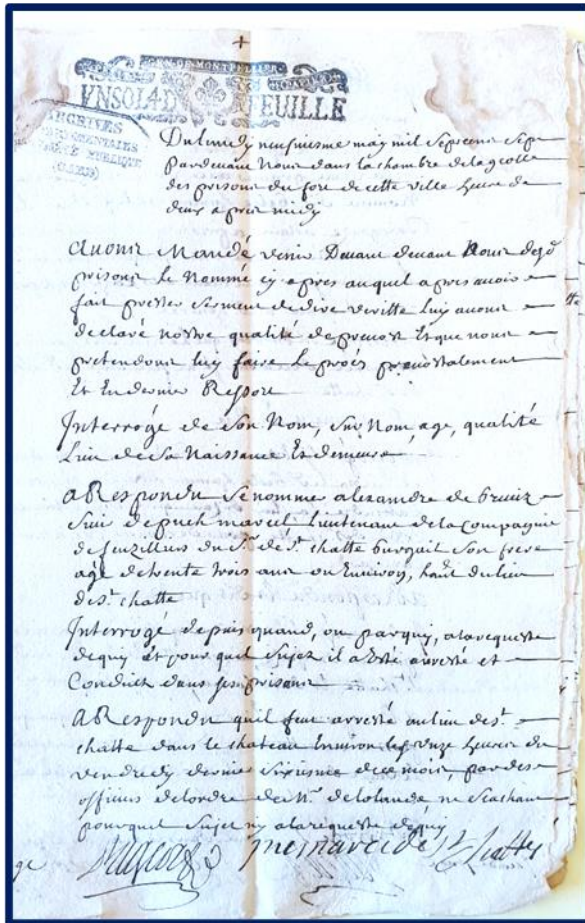 +
GEN·DE·MONTPELLIER
VNSOL4·D LA FEUILLE
ARCHIVES
Du lundy neufviesme may mil sept cens sept
pardevant Nous dans la chambre de la geolle
des prisons du fort de cette ville heure de
deux apres midy
Avons Mandé venir Devant Nous
prisons le Nommé cy apres auquel apres avoir
fait prester serment de dire veritte luy avons
declaré nostre qualité de prevost Et que nous
pretendons luy faire le procés prevostalement
Et En dernier Ressort
Interrogé de son Nom, sur Nom, age, qualité
Lieu de sa Naissance Et demeure
A Respondu se nommer alexandre de brueix
sieur de puech marcel lieutenant de la Compagnie
de fuzilliers du Sr. de St. chatte burguit son frere
agé de trente trois ans ou Environ, hant du lieu
de St. chatte
Interrogé depuis quand, ou par quy, a la requeste
de quy et pour quel sujet il a Esté arresté et
Conduict dans ses prisons
A Respondu quil feut arresté au lieu de St.
chatte dans le chateau Environ les onze heures du
vendredy dernier sixiesme de ce mois, par des
officiers de lordre de Mr. de lalande ne sachant
pour quel sujet ny a la requeste de quy
de St Chatte